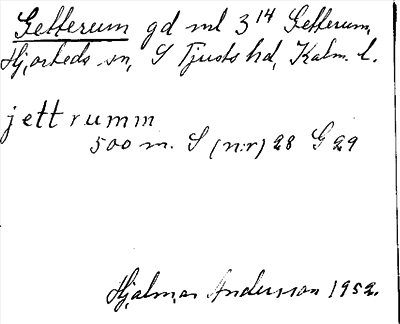 Getterum gd ml 3¹⁴ Getterum,
Hjorteds sn, S Tjusts hd, Kalm. l.
jettrumm
500 m. S (n:r) 28 G 29
Hjalmar Andersson 1952.